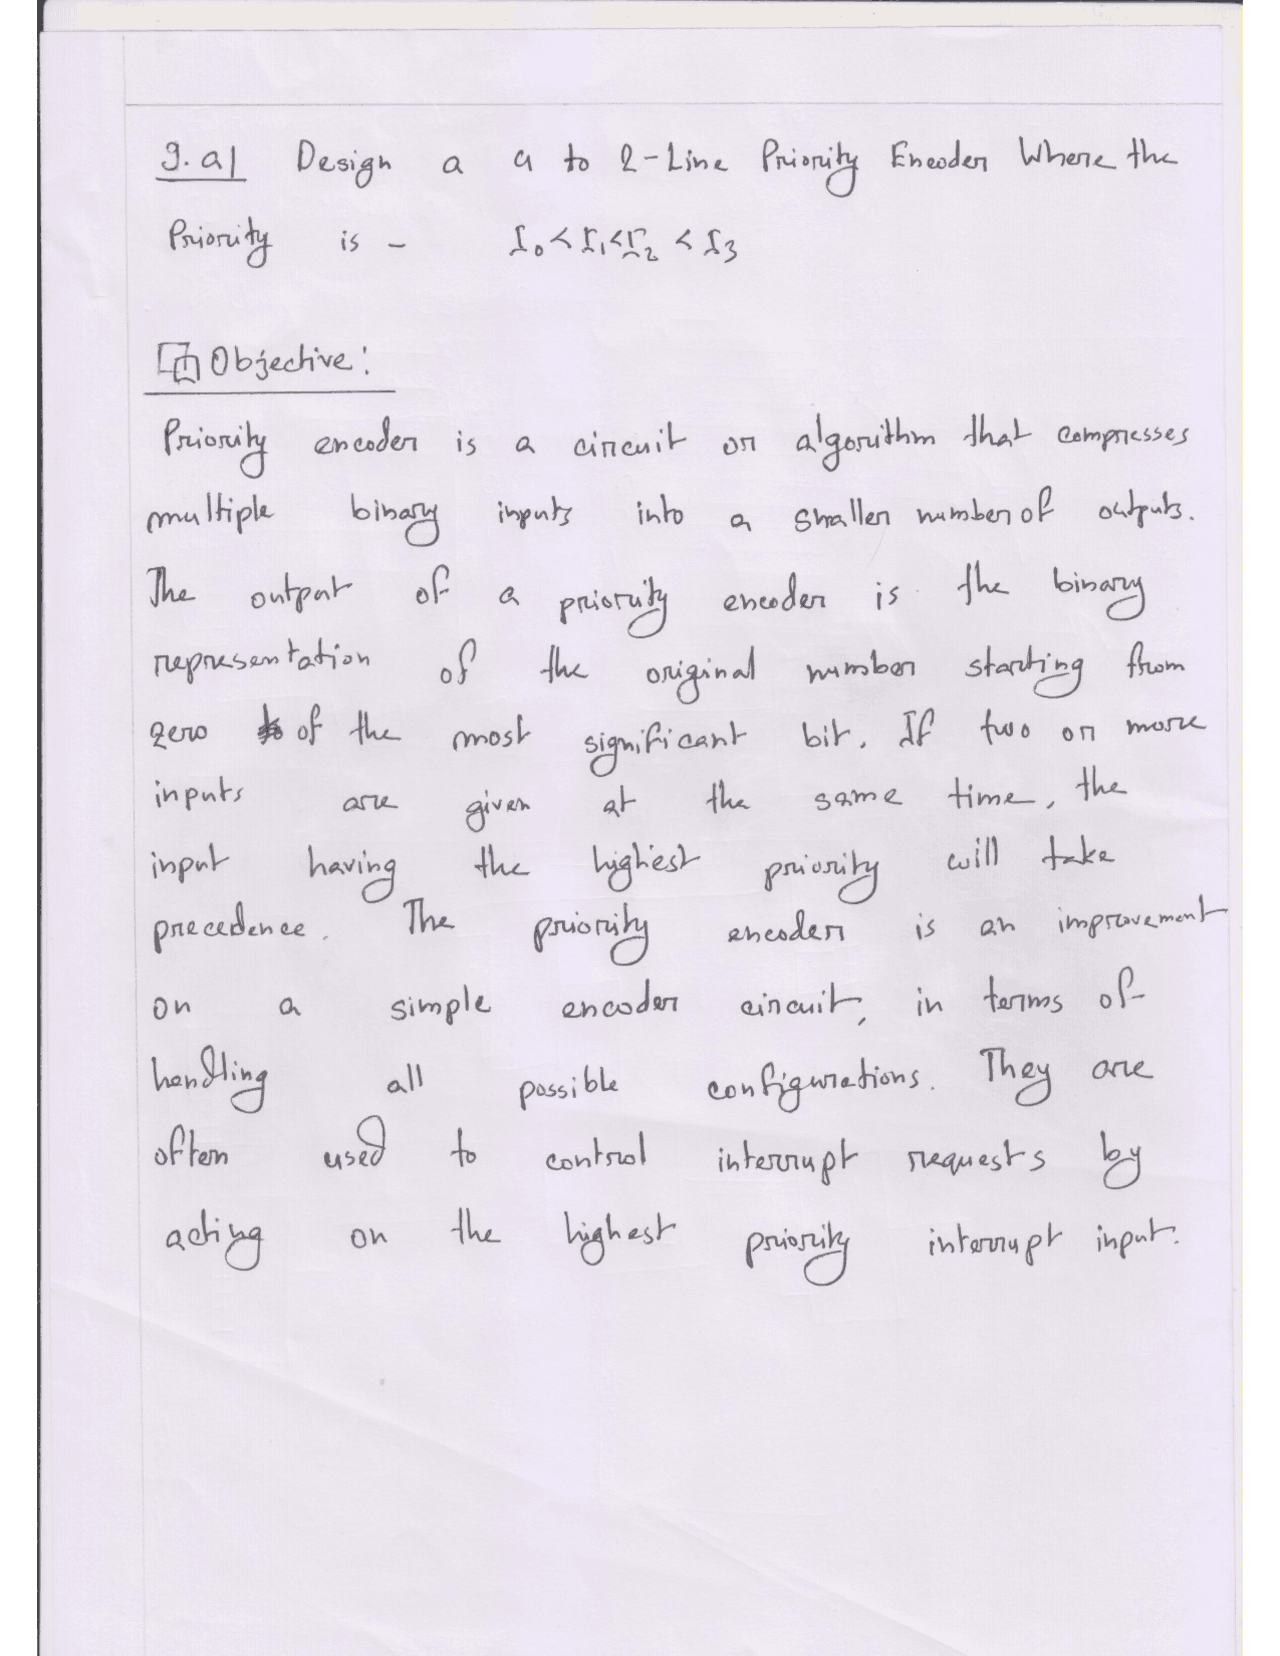 9.a| Design a 4 to 2-Line Priority Encoder Where the
Priority is - I₀<I₁<I₂<I₃
Objective:
Priority encoder is a circuit or algorithm that compresses
multiple binary inputs into a smaller number of outputs.
The output of a priority encoder is the binary
representation of the original number starting from
zero of the most significant bit. If two or more
inputs are given at the same time, the
input having the highest priority will take
precedence. The priority encoder is an improvement
on a simple encoder circuit, in terms of
handling all possible configurations. They are
often used to control interrupt requests by
acting on the highest priority interrupt input.